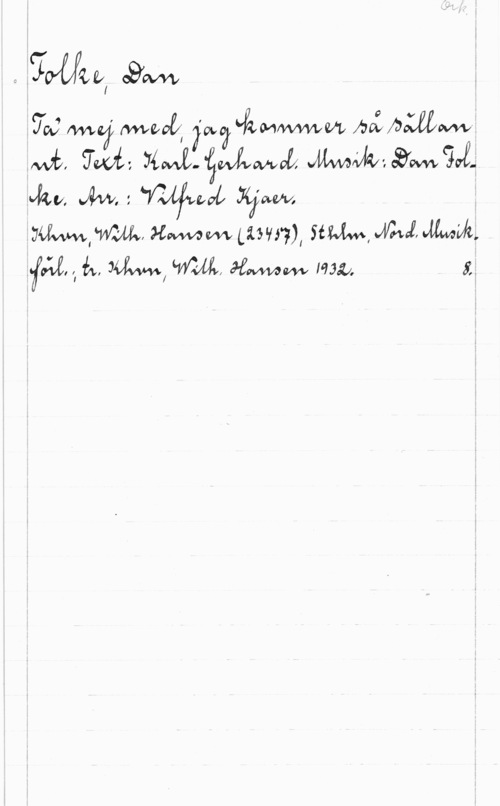 Ork.
Folke, Dan
Ta' mej med, jag kommer så sällan
ut. Text: Karl-Gerhard. Musik: Dan Fol-
ke. Arr.: Vilfred Kjaer.
Khvn, Wilh. Hansen (23457), Sthlm, Nord. Musik.
förl.; tr. Khvn, Wilh. Hansen 1932. 8.